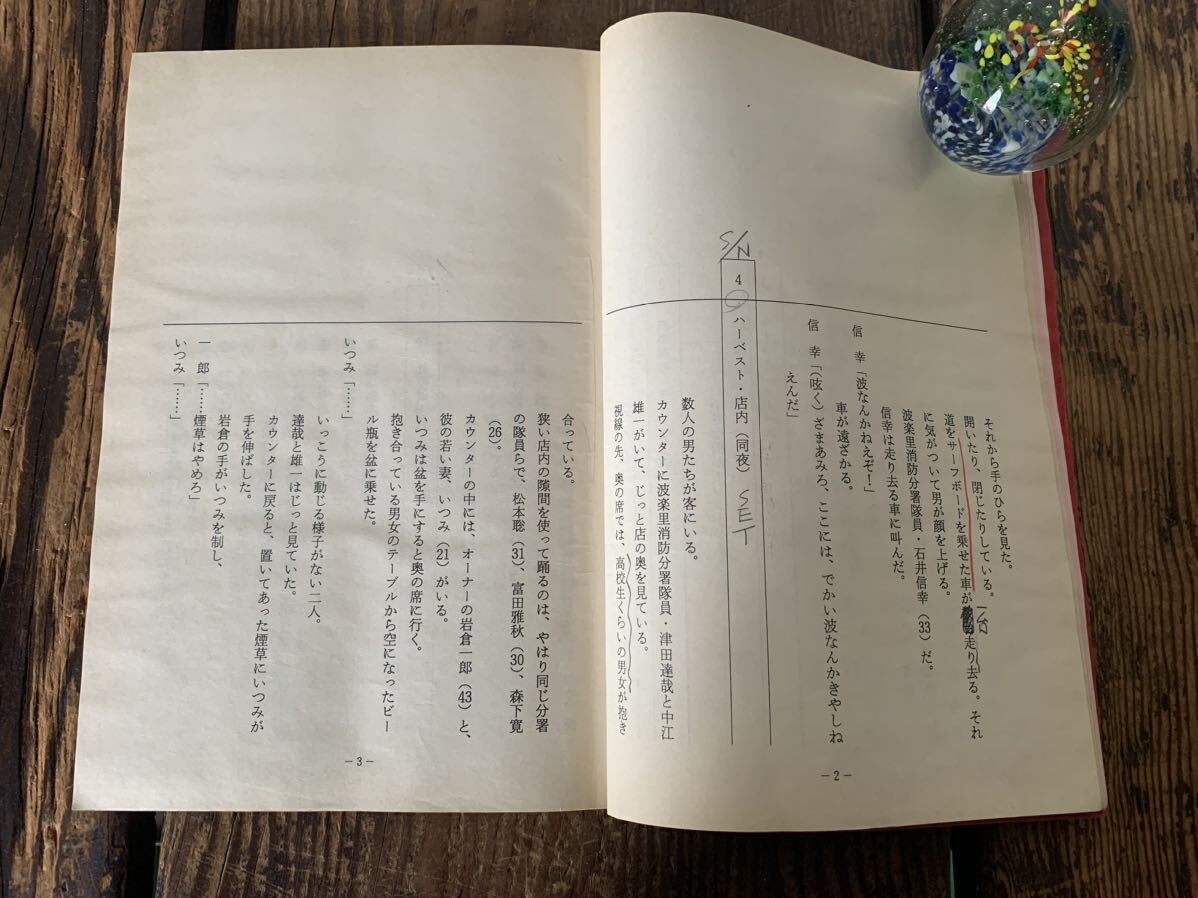 それから手のひらを見た。
開いたり、閉じたりしている。
道をサーフボードを乗せた車が一台走り去る。それ
に気がついて男が顔を上げる。
波楽里消防分署隊員・石井信幸（33）だ。
信幸は走り去る車に叫んだ。
信　幸「波なんかねえぞ！」
車が遠ざかる。
信　幸「（呟く）ざまあみろ、ここには、でかい波なんかきやしね
えんだ」
S/N
4 ハーベスト・店内（同夜） SET
数人の男たちが客にいる。
カウンターに波楽里消防分署隊員・津田達哉と中江
雄一がいて、じっと店の奥を見ている。
視線の先、奥の席では、高校生くらいの男女が抱き
－2－
合っている。
狭い店内の隙間を使って踊るのは、やはり同じ分署
の隊員らで、松本聡（31）、富田雅秋（30）、森下寛
（26）。
カウンターの中には、オーナーの岩倉一郎（43）と、
彼の若い妻、いつみ（21）がいる。
いつみは盆を手にすると奥の席に行く。
抱き合っている男女のテーブルから空になったビー
ル瓶を盆に乗せた。
いつみ「……」
いっこうに動じる様子がない二人。
達哉と雄一はじっと見ていた。
カウンターに戻ると、置いてあった煙草にいつみが
手を伸ばした。
岩倉の手がいつみを制し、
一　郎「……煙草はやめろ」
いつみ「……」
－3－